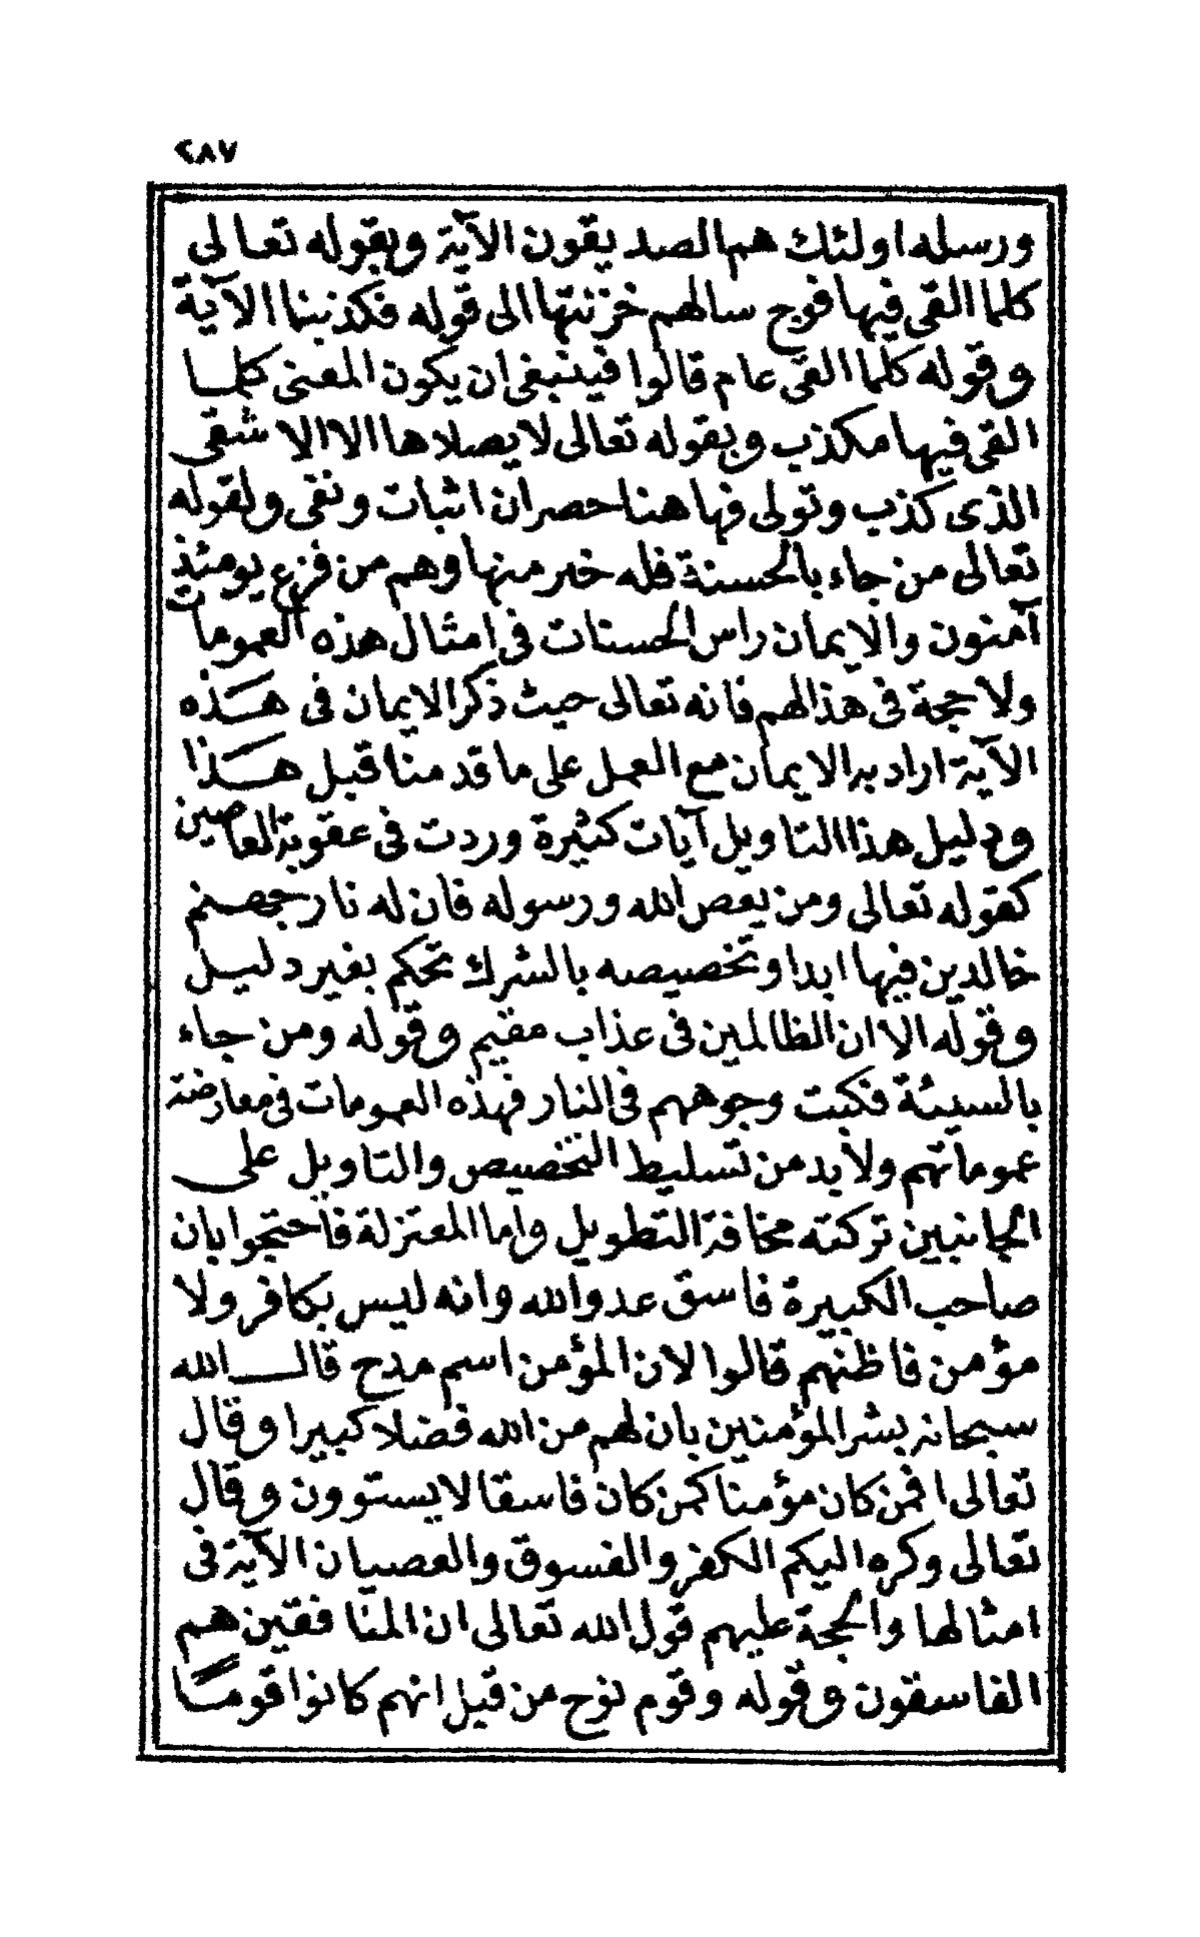 ٢٨٧
ورسله اولئك هم الصديقون الآية وبقوله تعالى
كلما القى فيها فوج سالهم خزنتها الى قوله فكذبنا الآية
وقوله كلما القى عام قالوا فينبغى ان يكون المعنى كلما
القى فيها مكذب وبقوله تعالى لا يصلاها الا الا شقى
الذى كذب وتولى فها هنا حصران اثبات ونفى ولقوله
تعالى من جاء بالحسنة فله خير منها وهم من فزع يومئذ
آمنون والايمان راس الحسنات فى امثال هذه العمومات
ولا حجة فى هذا لهم فانه تعالى حيث ذكر الايمان فى هذه
الآية اراد به الايمان مع العمل على ما قدمنا قبل هذا
ودليل هذا التاويل آيات كثيرة وردت فى عقوبة العاصين
كقوله تعالى ومن يعص الله ورسوله فان له نار جهنم
خالدين فيها ابدا وتخصيصه بالشرك تحكم بغير دليل
وقوله الا ان الظالمين فى عذاب مقيم وقوله ومن جاء
بالسيئة فكبت وجوههم فى النار فهذه العمومات فى معارضة
عموماتهم ولا بد من تسليط التخصيص والتاويل على
الجانبين تركته مخافة التطويل واما المعتزلة فاحتجوا بان
صاحب الكبيرة فاسق عدو الله وانه ليس بكافر ولا
مؤمن فاظنهم قالوا لان المؤمن اسم مدح قال الله
سبحانه بشر المؤمنين بان لهم من الله فضلا كبيرا وقال
تعالى افمن كان مؤمنا كمن كان فاسقا لا يستوون وقال
تعالى وكره اليكم الكفر والفسوق والعصيان الآية فى
امثالها والحجة عليهم قول الله تعالى ان المنافقين هم
الفاسقون وقوله وقوم نوح من قبل انهم كانوا قوما